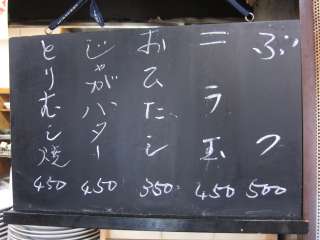 ぶつ 500
ニラ玉 450
おひたし 350
じゃがバター 450
とりむし焼 450